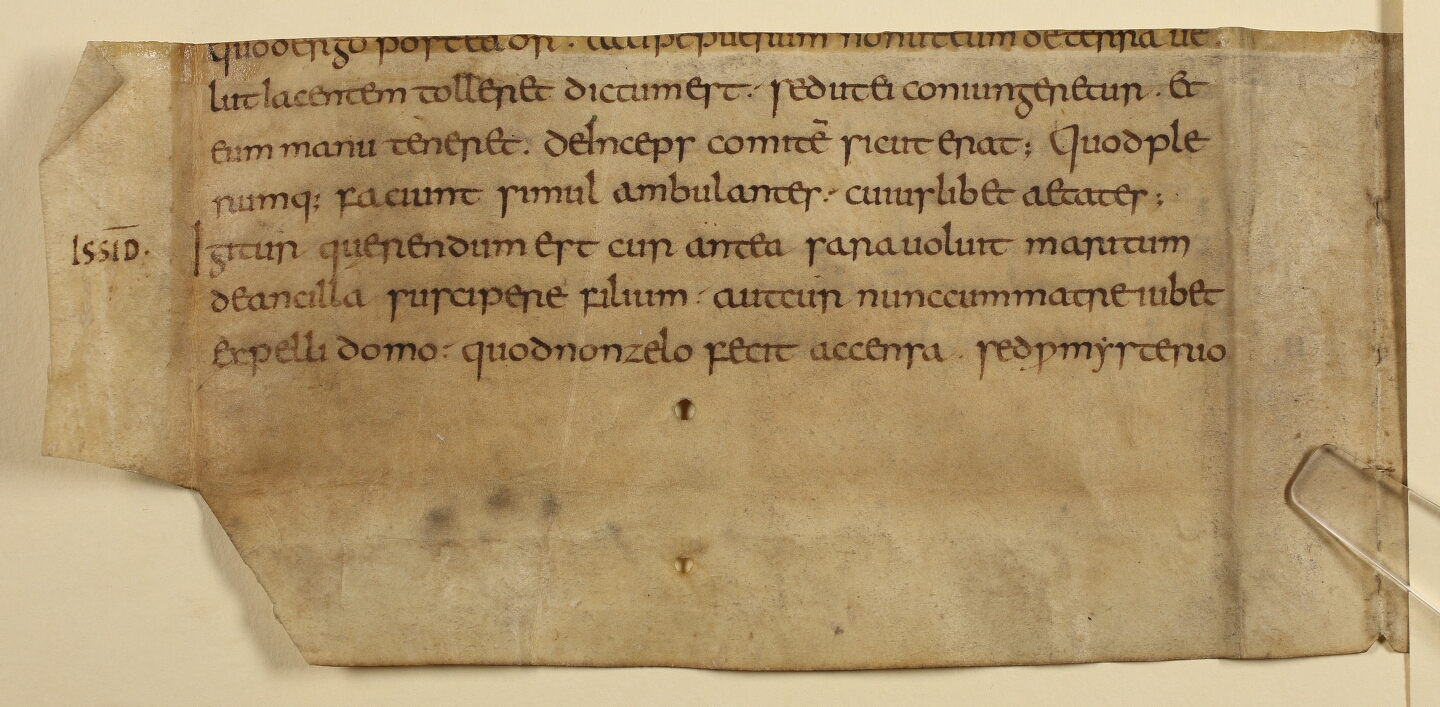 quod ergo postea dr̄. accipe puerum non ut eum de terra ue
lut iacentem tolleret dictum est. sed ut ei coniungeretur. Et
eum manu teneret. deinceps comitē sicut erat; Quod ple
rumq; faciunt simul ambulantes. cuiuslibet aetates;
ISSĪD. Igitur querendum est cur antea sara uoluit maritum
de ancilla suscipere filium. autcur nunc cum matre iubet
expelli domo. quod non zelo fecit accensa. sed ꝑ mysterio